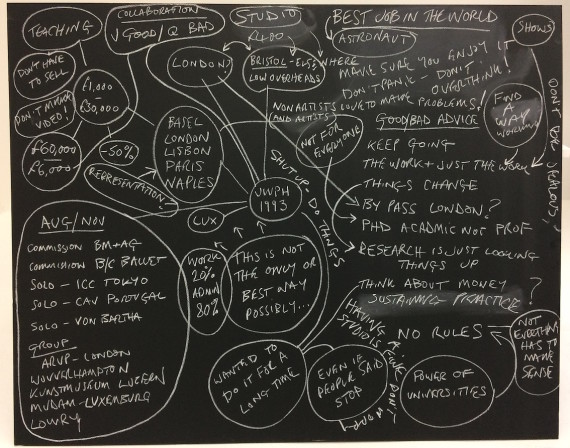 TEACHING
COLLABORATION
√ GOOD / Q BAD
STUDIO
R400
BEST JOB IN THE WORLD
ASTRONAUT
SHOWS
DON'T HAVE
TO SELL
£1,000
£30,000
LONDON?
BRISTOL - ELSEWHERE
LOW OVERHEADS
MAKE SURE YOU ENJOY IT
DON'T PANIC - DON'T
OVERTHINK!
NON ARTISTS LOVE TO MAKE PROBLEMS!
(AND ARTISTS)
VIDEO!
FIND
A
WAY
DON'T
JEALOUS!
GOOD/BAD ADVICE
NOT FOR
EVERYONE
£60,000
£6,000
-50%
BASEL
LONDON
LISBON
PARIS
NAPLES
KEEP GOING
THE WORK + JUST THE WORK
THINGS CHANGE
REPRESENTATION?
UWPH
1993
SHUT UP - DO THINGS
BY PASS LONDON?
PHD ACADMIC NOT PROF
LUX
RESEARCH IS JUST LOOKING
THINGS UP
AUG/NOV
COMMISSION BM+AG
COMMISSION B/C BALLET
SOLO - ICC TOKYO
SOLO - CAV PORTUGAL
SOLO - VON BARTHA
GROUP
ARUP - LONDON
WOLVERHAMPTON
KUNSTMUSEUM LUZERN
MUDAM - LUXEMBURG
LOWRY
WORK
20%
ADMIN
80%
THIS IS NOT
THE ONLY OR
BEST WAY
POSSIBLY...
THINK ABOUT MONEY ?
SUSTAINING PRACTICE
HAVING A
STUDIO IS
DON'T
NO RULES
NOT EVERYTHING
HAS TO
MAKE
SENSE
WANTED TO
DO IT FOR A
LONG TIME
EVEN IF
PEOPLE SAID
STOP
POWER OF
UNIVERSITIES